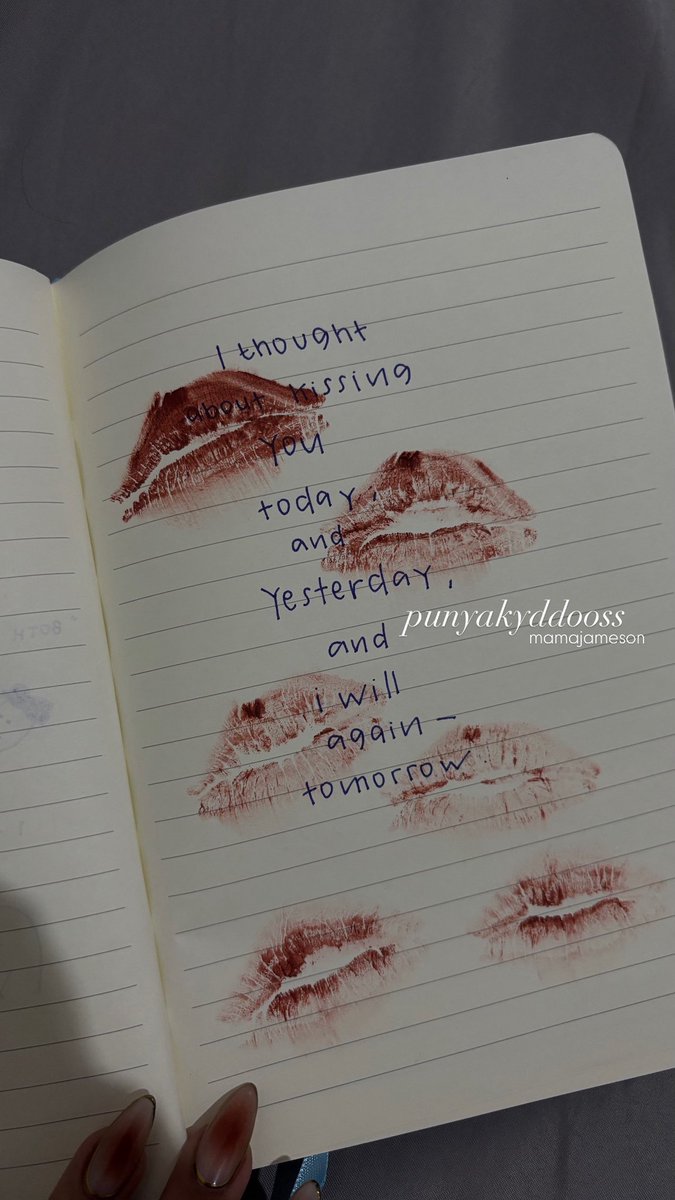 I thought
about kissing
you
today,
and
yesterday,
and
i will
again —
tomorrow
punyakyddooss
mamajameson